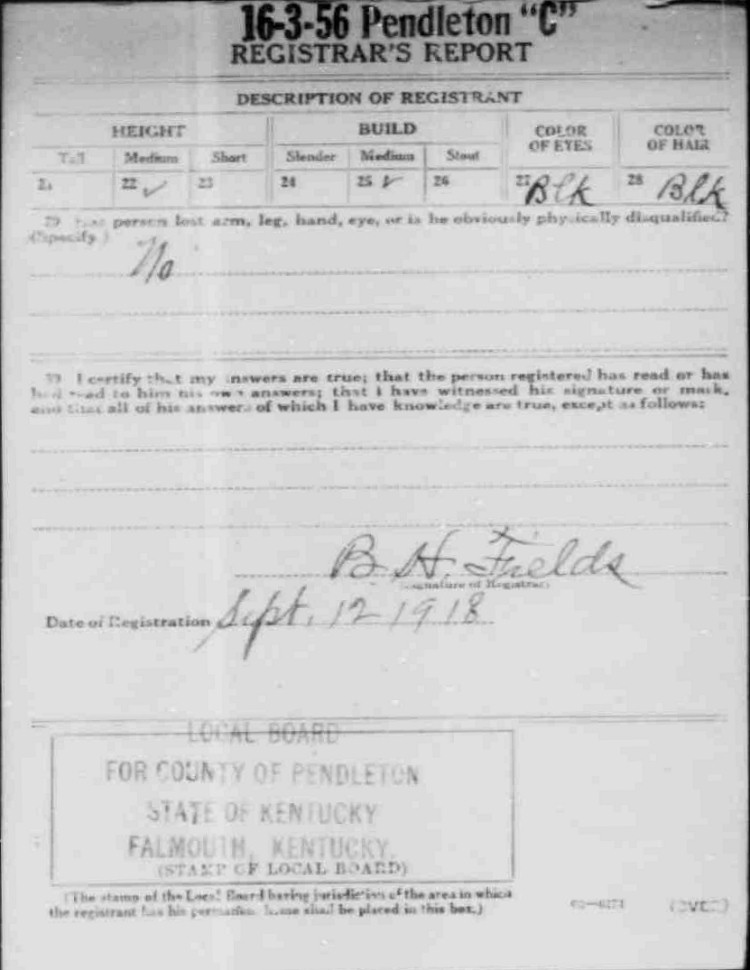 16-3-56 Pendleton "C"
REGISTRAR'S REPORT
DESCRIPTION OF REGISTRANT
HEIGHT BUILD COLOR OF EYES COLOR OF HAIR
Tall Medium Short Slender Medium Stout
21 22 ✓ 23 24 25 ✓ 26 27 Blk 28 Blk
29 Has person lost arm, leg, hand, eye, or is he obviously physically disqualified?
(Specify.)
No
30 I certify that my answers are true; that the person registered has read or has
had read to him his own answers; that I have witnessed his signature or mark,
and that all of his answers of which I have knowledge are true, except as follows:
B. H. Fields
(Signature of Registrar)
Date of Registration Sept. 12 1918
LOCAL BOARD
FOR COUNTY OF PENDLETON
STATE OF KENTUCKY
FALMOUTH, KENTUCKY.
(STAMP OF LOCAL BOARD)
(The stamp of the Local Board having jurisdiction of the area in which
the registrant has his permanent home shall be placed in this box.)
(OVER)